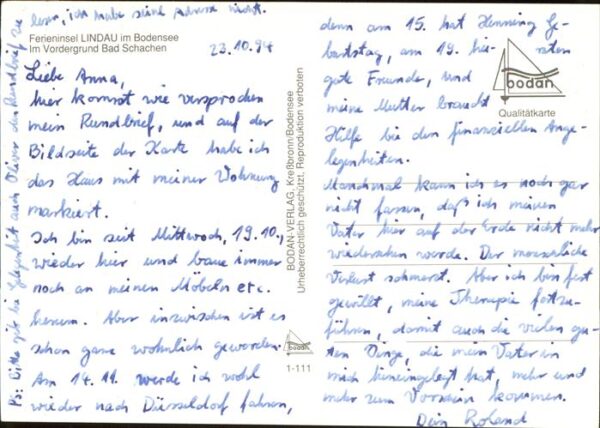 Ferieninsel LINDAU im Bodensee
Im Vordergrund Bad Schachen
23.10.94
Liebe Anna,
hier kommt wie versprochen
mein Rundbrief, und auf der
Bildseite der Karte habe ich
das Haus mit meiner Wohnung
markiert.
Ich bin seit Mittwoch, 19.10.,
wieder hier und baue immer
noch an meinen Möbeln etc.
herum. Aber inzwischen ist es
schon ganz wohnlich geworden.
Am 14.11. werde ich wohl
wieder nach Düsseldorf fahren,
denn am 15. hat Henning Ge-
burtstag, am 19. hei-raten
gute Freunde, und
meine Mutter braucht
Hilfe bei den finanziellen Ange-
legenheiten.
Manchmal kann ich es noch gar
nicht fassen, daß ich meinen
Vater hier auf der Erde nicht mehr
wiedersehen werde. Der menschliche
Verlust schmerzt. Aber ich bin fest
gewillt, meine Therapie fortzu-
führen, damit auch die vielen gu-
ten Dinge, die mein Vater in
mich hineingelegt hat, mehr und
mehr zum Vorschein kommen.
Dein Roland
PS: Bitte gib bei Gelegenheit auch Oliver den Rundbrief zu
lesen, ich habe seine Adresse nicht.
BODAN-VERLAG, Kreßbronn/Bodensee
Urheberrechtlich geschützt, Reproduktion verboten
bodan
1-111
bodan
Qualitätkarte